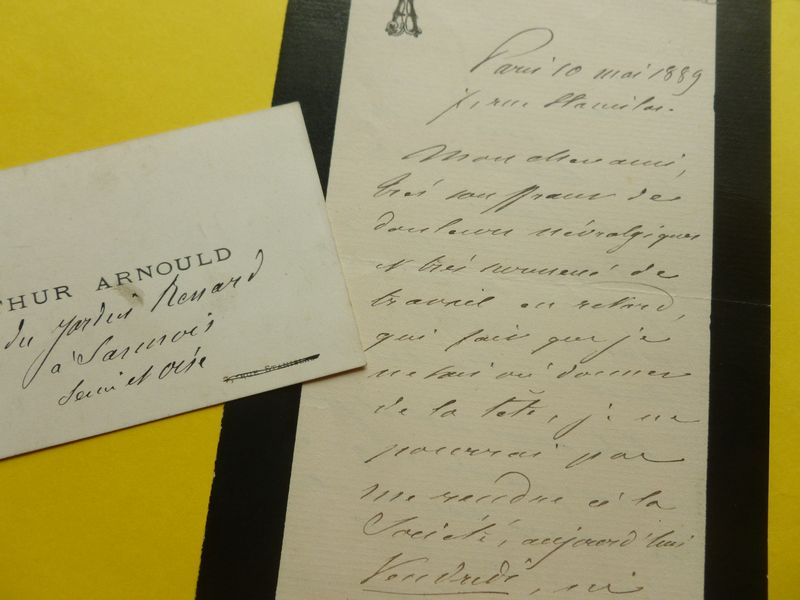 THUR ARNOULD
du jardin Renard
à Sannois
Seine et Oise
Paris 10 mai 1889
7, rue Stanislas.
Mon cher ami,
très souffrant de
douleurs névralgiques
et très surmené de
travail en retard,
qui fait que je
ne sais où donner
de la tête, je ne
pourrai pas
me rendre à la
Société, aujourd'hui
Vendredi, ni